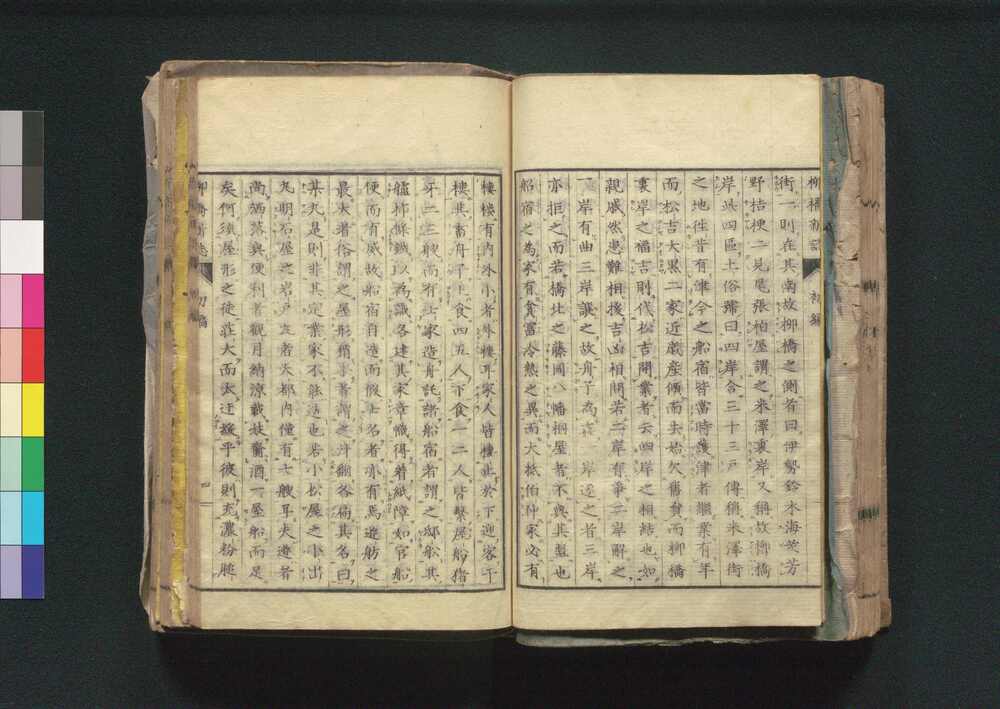 柳橋新誌 初編
街一則在其南故柳橋之側者曰伊勢鈴木海芳
野桔梗二見尾張柏屋謂之米澤裏岸又稱故柳橋
岸此四區土俗號曰四岸合三十三戶傳稱米澤街
之地往昔有津今之船宿皆當時護津者繼業有年
而松吉大黑二家近歲產傾而失始欠舊貧而柳橋
裏岸之福吉則代松吉開業者云四岸之相結也如
親戚然患難相援吉凶相問若二岸有爭二岸解之
一岸有曲三岸讓之故舟子為 岸逐之者三岸
亦拒之而若橋北之藤岡八幡桐屋者不與其盟也
船宿之為家有貧富冷熱之異而大抵伯仲家必有
樓樓有內外小者無樓耳家人皆棲止於下迎客于
樓其畜舟子上食四五人下食一二人皆繫屋船猪
牙二三艘而有士家造舟託諸船宿者謂之邸船其
艫柿條鐵以為識各建其家章幟得着紙障如官船
便而有威故船宿自造而假士名者亦有焉遊舫之
最大者俗謂之屋形稍小者謂之汁舸各稱其名曰
某丸是則非其定業家不能造也若小松屋之小出
丸明石屋之岩戶丸者大都內僅有七艘耳夫遊者
尚洒落與便利者觀月納涼載妓齎酒一屋船而足
矣何須屋形之徒莊大而太迂緩乎彼則充濃粉膩
柳橋新誌 初編 四